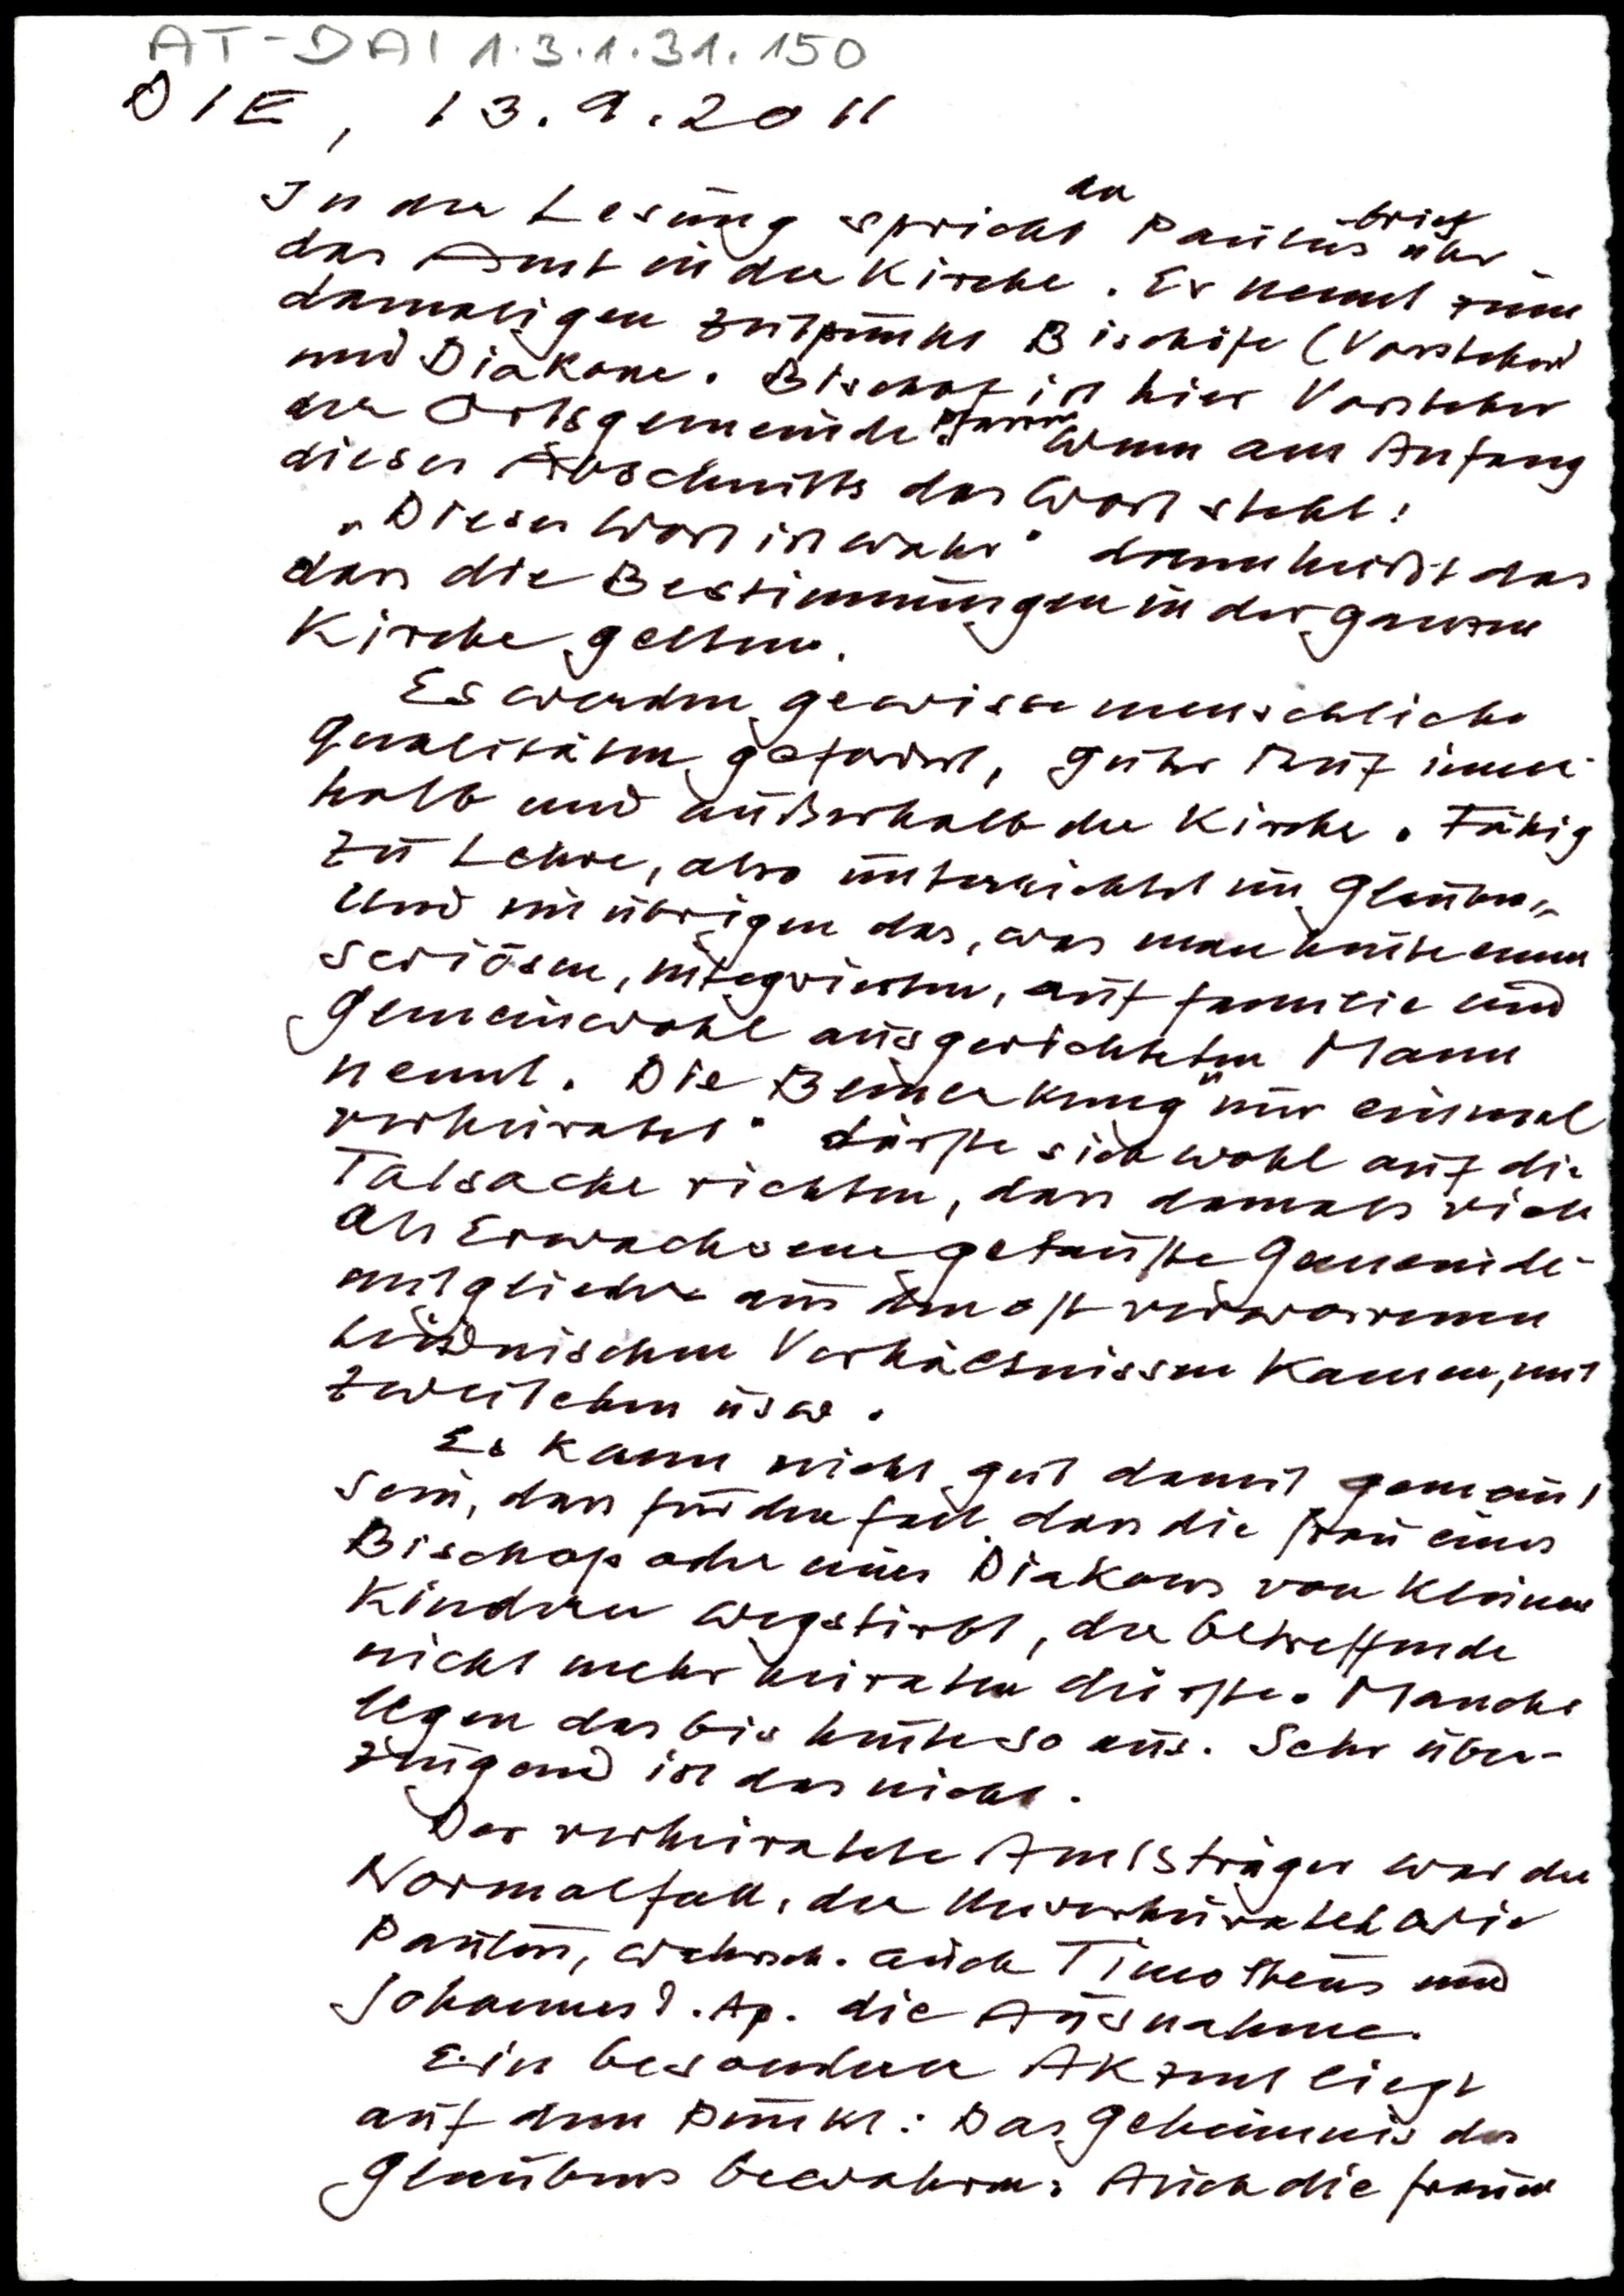 AT-DAI 1.3.1.31.150
DIE, 13.9.2011
In der Lesung spricht der Paulusbrief über
das Amt in der Kirche. Er nennt zum
damaligen Zeitpunkt Bischöfe (Vorsteher)
und Diakone. Bischof ist hier Vorsteher
der Ortsgemeinde Pfarrer Wenn am Anfang
dieses Abschnitts das Wort steht:
"Dieses Wort ist wahr" dann heißt das
dass die Bestimmungen in der ganzen
Kirche gelten.
Es werden gewisse menschliche
Qualitäten gefordert, guter Ruf inner-
halb und außerhalb der Kirche. Fähig
zu Lehre, also unterrichtet im Glauben,
Und im übrigen das, was man heute einen
seriösen, integrierten, auf Familie und
Gemeinwohl ausgerichteten Mann
nennt. Die Bemerkung "nur einmal
verheiratet" dürfte sich wohl auf die
Tatsache richten, dass damals viele
als Erwachsene getaufte Gemeinde-
mitglieder aus den oft verworrenen
heidnischen Verhältnissen kamen, mit
Zweitehen usw.
Es kann nicht gut damit gemeint
sein, dass für den Fall, dass die Frau eines
Bischofs oder eines Diakons von kleinen
Kindern wegstirbt, der betreffende
nicht mehr heiraten dürfte. Manche
legen das bis heute so aus. Sehr über-
zeugend ist das nicht.
Der verheiratete Amtsträger war der
Normalfall, der Unverheiratete wie
Paulus, wahrsch. auch Timotheus und
Johannes d. Ap. die Ausnahme.
Ein besonderer Akzent liegt
auf dem Punkt: Das Geheimnis des
Glaubens bewahren: Auch die Frauen